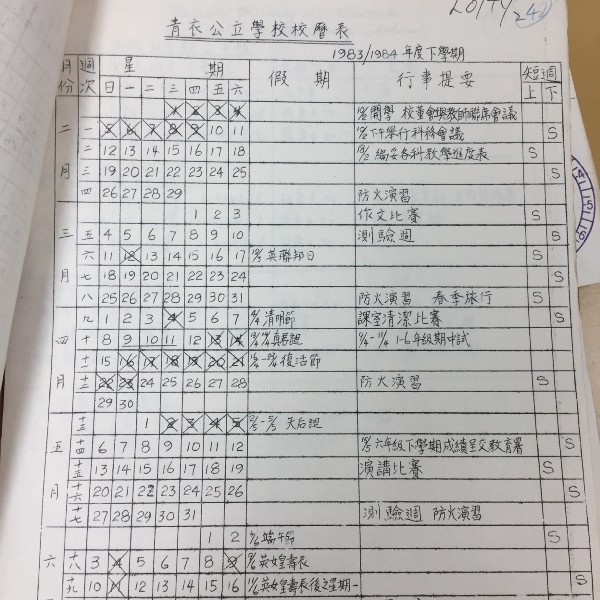 青衣公立學校校曆表
1983/1984年度下學期
月份 週次 星期 假期 行事提要 短週
日 一 二 三 四 五 六 上 下
1 2 3 4 開學 校董會與教師聯席會議
二月 一 5 6 7 8 9 10 11 下午舉行科務會議
二 12 13 14 15 16 17 18 編妥各科教學進度表 S
三 19 20 21 22 23 24 25 S
四 26 27 28 29 防火演習
三月 1 2 3 作文比賽 S
五 4 5 6 7 8 9 10 測驗週 S
六 11 12 13 14 15 16 17 英聯邦日 S
七 18 19 20 21 22 23 24 S
八 25 26 27 28 29 30 31 防火演習 春季旅行 S
四月 九 1 2 3 4 5 6 7 清明節 課室清潔比賽 S
十 8 9 10 11 12 13 14 1-6年級期中試
十一 15 16 17 18 19 20 21 復活節
十二 22 23 24 25 26 27 28 防火演習 S
29 30
五月 十三 1 2 3 4 5 天后誕
十四 6 7 8 9 10 11 12 六年級下學期成績呈交教育署 S
十五 13 14 15 16 17 18 19 演講比賽 S
十六 20 21 22 23 24 25 26 S
十七 27 28 29 30 31 測驗週 防火演習
六 1 2 端午節 S
十八 3 4 5 6 7 8 9 英女皇壽辰 S
十九 10 11 12 13 14 15 16 英女皇壽辰後之星期一 S